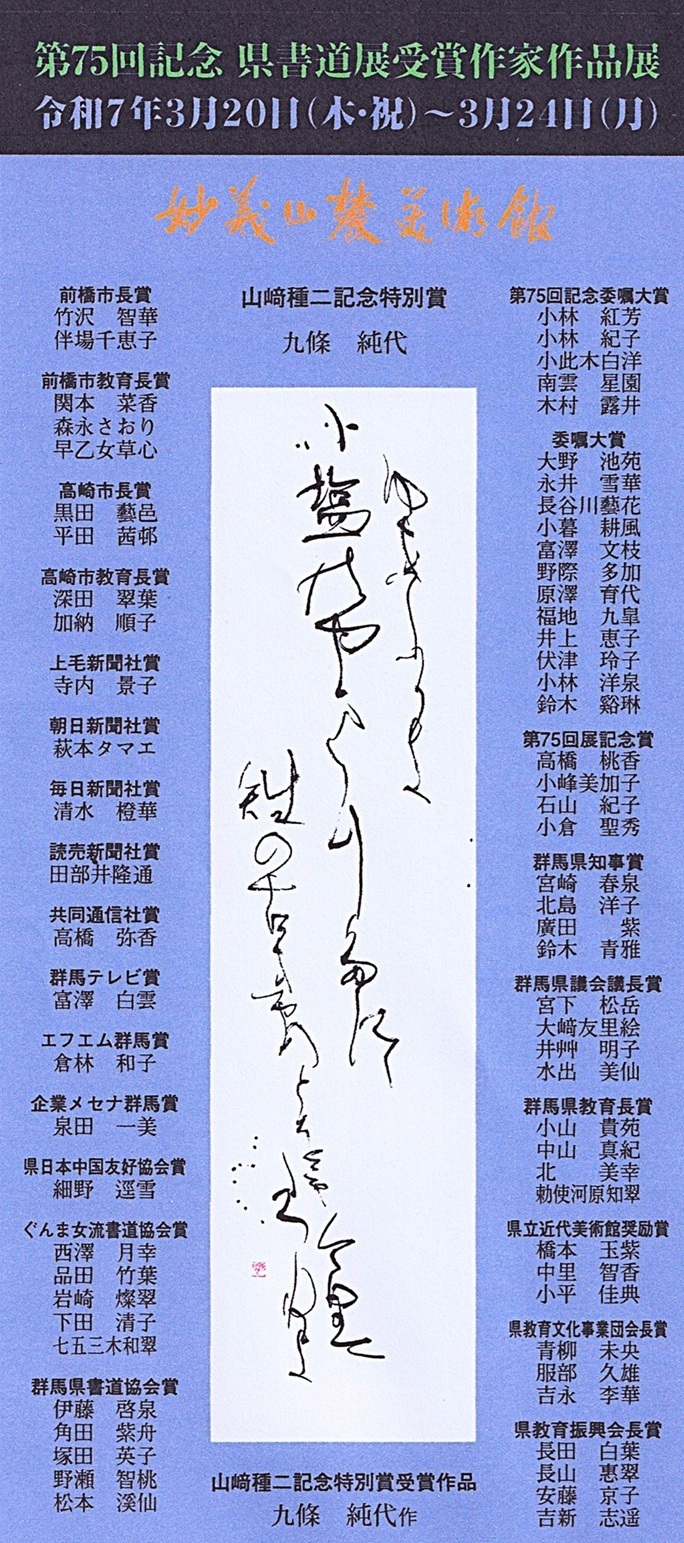 第75回記念 県書道展受賞作家作品展
令和7年3月20日(木・祝)～3月24日(月)
妙義山麓美術館
第75回記念委嘱大賞
小林 紅芳
小林 紀子
小此木白洋
南雲 星園
木村 露井
委嘱大賞
大野 池苑
永井 雪華
長谷川藝花
小暮 耕風
富澤 文枝
野際 多加
原澤 育代
福地 九皐
井上 恵子
伏津 玲子
小林 洋泉
鈴木 谿琳
第75回展記念賞
高橋 桃香
小峰美加子
石山 紀子
小倉 聖秀
群馬県知事賞
宮崎 春泉
北島 洋子
廣田 紫
鈴木 青雅
群馬県議会議長賞
宮下 松岳
大﨑友里絵
井艸 明子
水出 美仙
群馬県教育長賞
小山 貴苑
中山 真紀
北 美幸
勅使河原知翠
県立近代美術館奨励賞
橋本 玉紫
中里 智香
小平 佳典
県教育文化事業団会長賞
青柳 未央
服部 久雄
吉永 李華
県教育振興会長賞
長田 白葉
長山 惠翠
安藤 京子
吉新 志遥
山﨑種二記念特別賞
九條 純代
山﨑種二記念特別賞受賞作品
九條 純代作
前橋市長賞
竹沢 智華
伴場千恵子
前橋市教育長賞
関本 菜香
森永さおり
早乙女草心
高崎市長賞
黒田 藝邑
平田 茜邨
高崎市教育長賞
深田 翠葉
加納 順子
上毛新聞社賞
寺内 景子
朝日新聞社賞
萩本タマエ
毎日新聞社賞
清水 橙華
読売新聞社賞
田部井隆通
共同通信社賞
高橋 弥香
群馬テレビ賞
富澤 白雲
エフエム群馬賞
倉林 和子
企業メセナ群馬賞
泉田 一美
県日本中国友好協会賞
細野 逕雪
ぐんま女流書道協会賞
西澤 月幸
品田 竹葉
岩崎 燦翠
下田 清子
七五三木和翠
群馬県書道協会賞
伊藤 啓泉
角田 紫舟
塚田 英子
野瀬 智桃
松本 溪仙